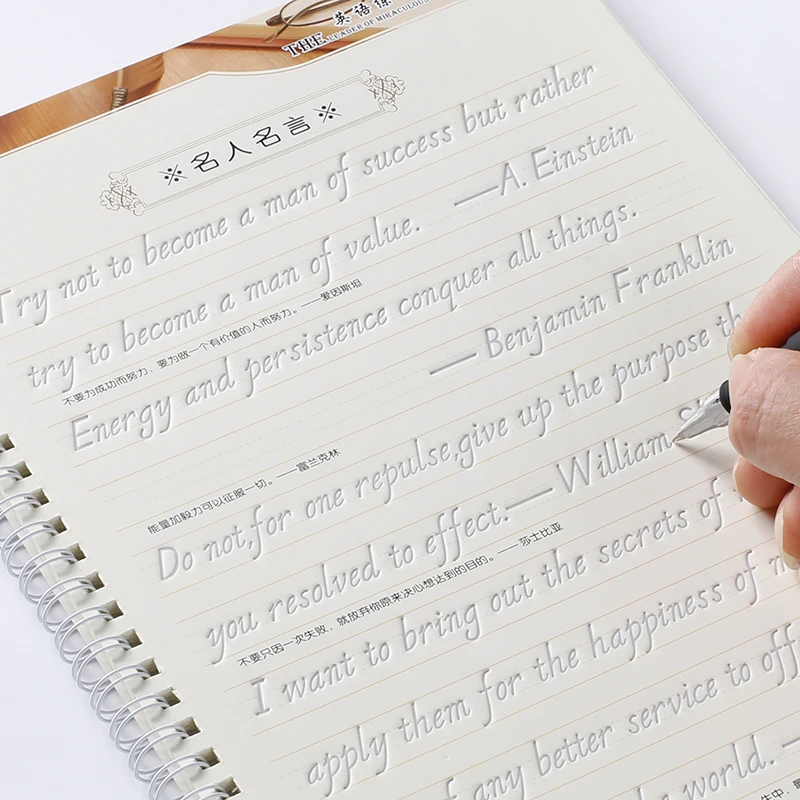 THE 英语练
LEADER OF MIRACULOUS
※名人名言※
Try not to become a man of success but rather
try to become a man of value. —A. Einstein
不要为成功而努力,要为做一个有价值的人而努力。——爱因斯坦
Energy and persistence conquer all things.
— Benjamin Franklin
能量加毅力可以征服一切。——富兰克林
Do not,for one repulse,give up the purpose th
you resolved to effect.—William
不要只因一次失败,就放弃你原来决心想达到的目的。——莎士比亚
I want to bring out the secrets of
apply them for the happiness of
of any better service to off
the world. —